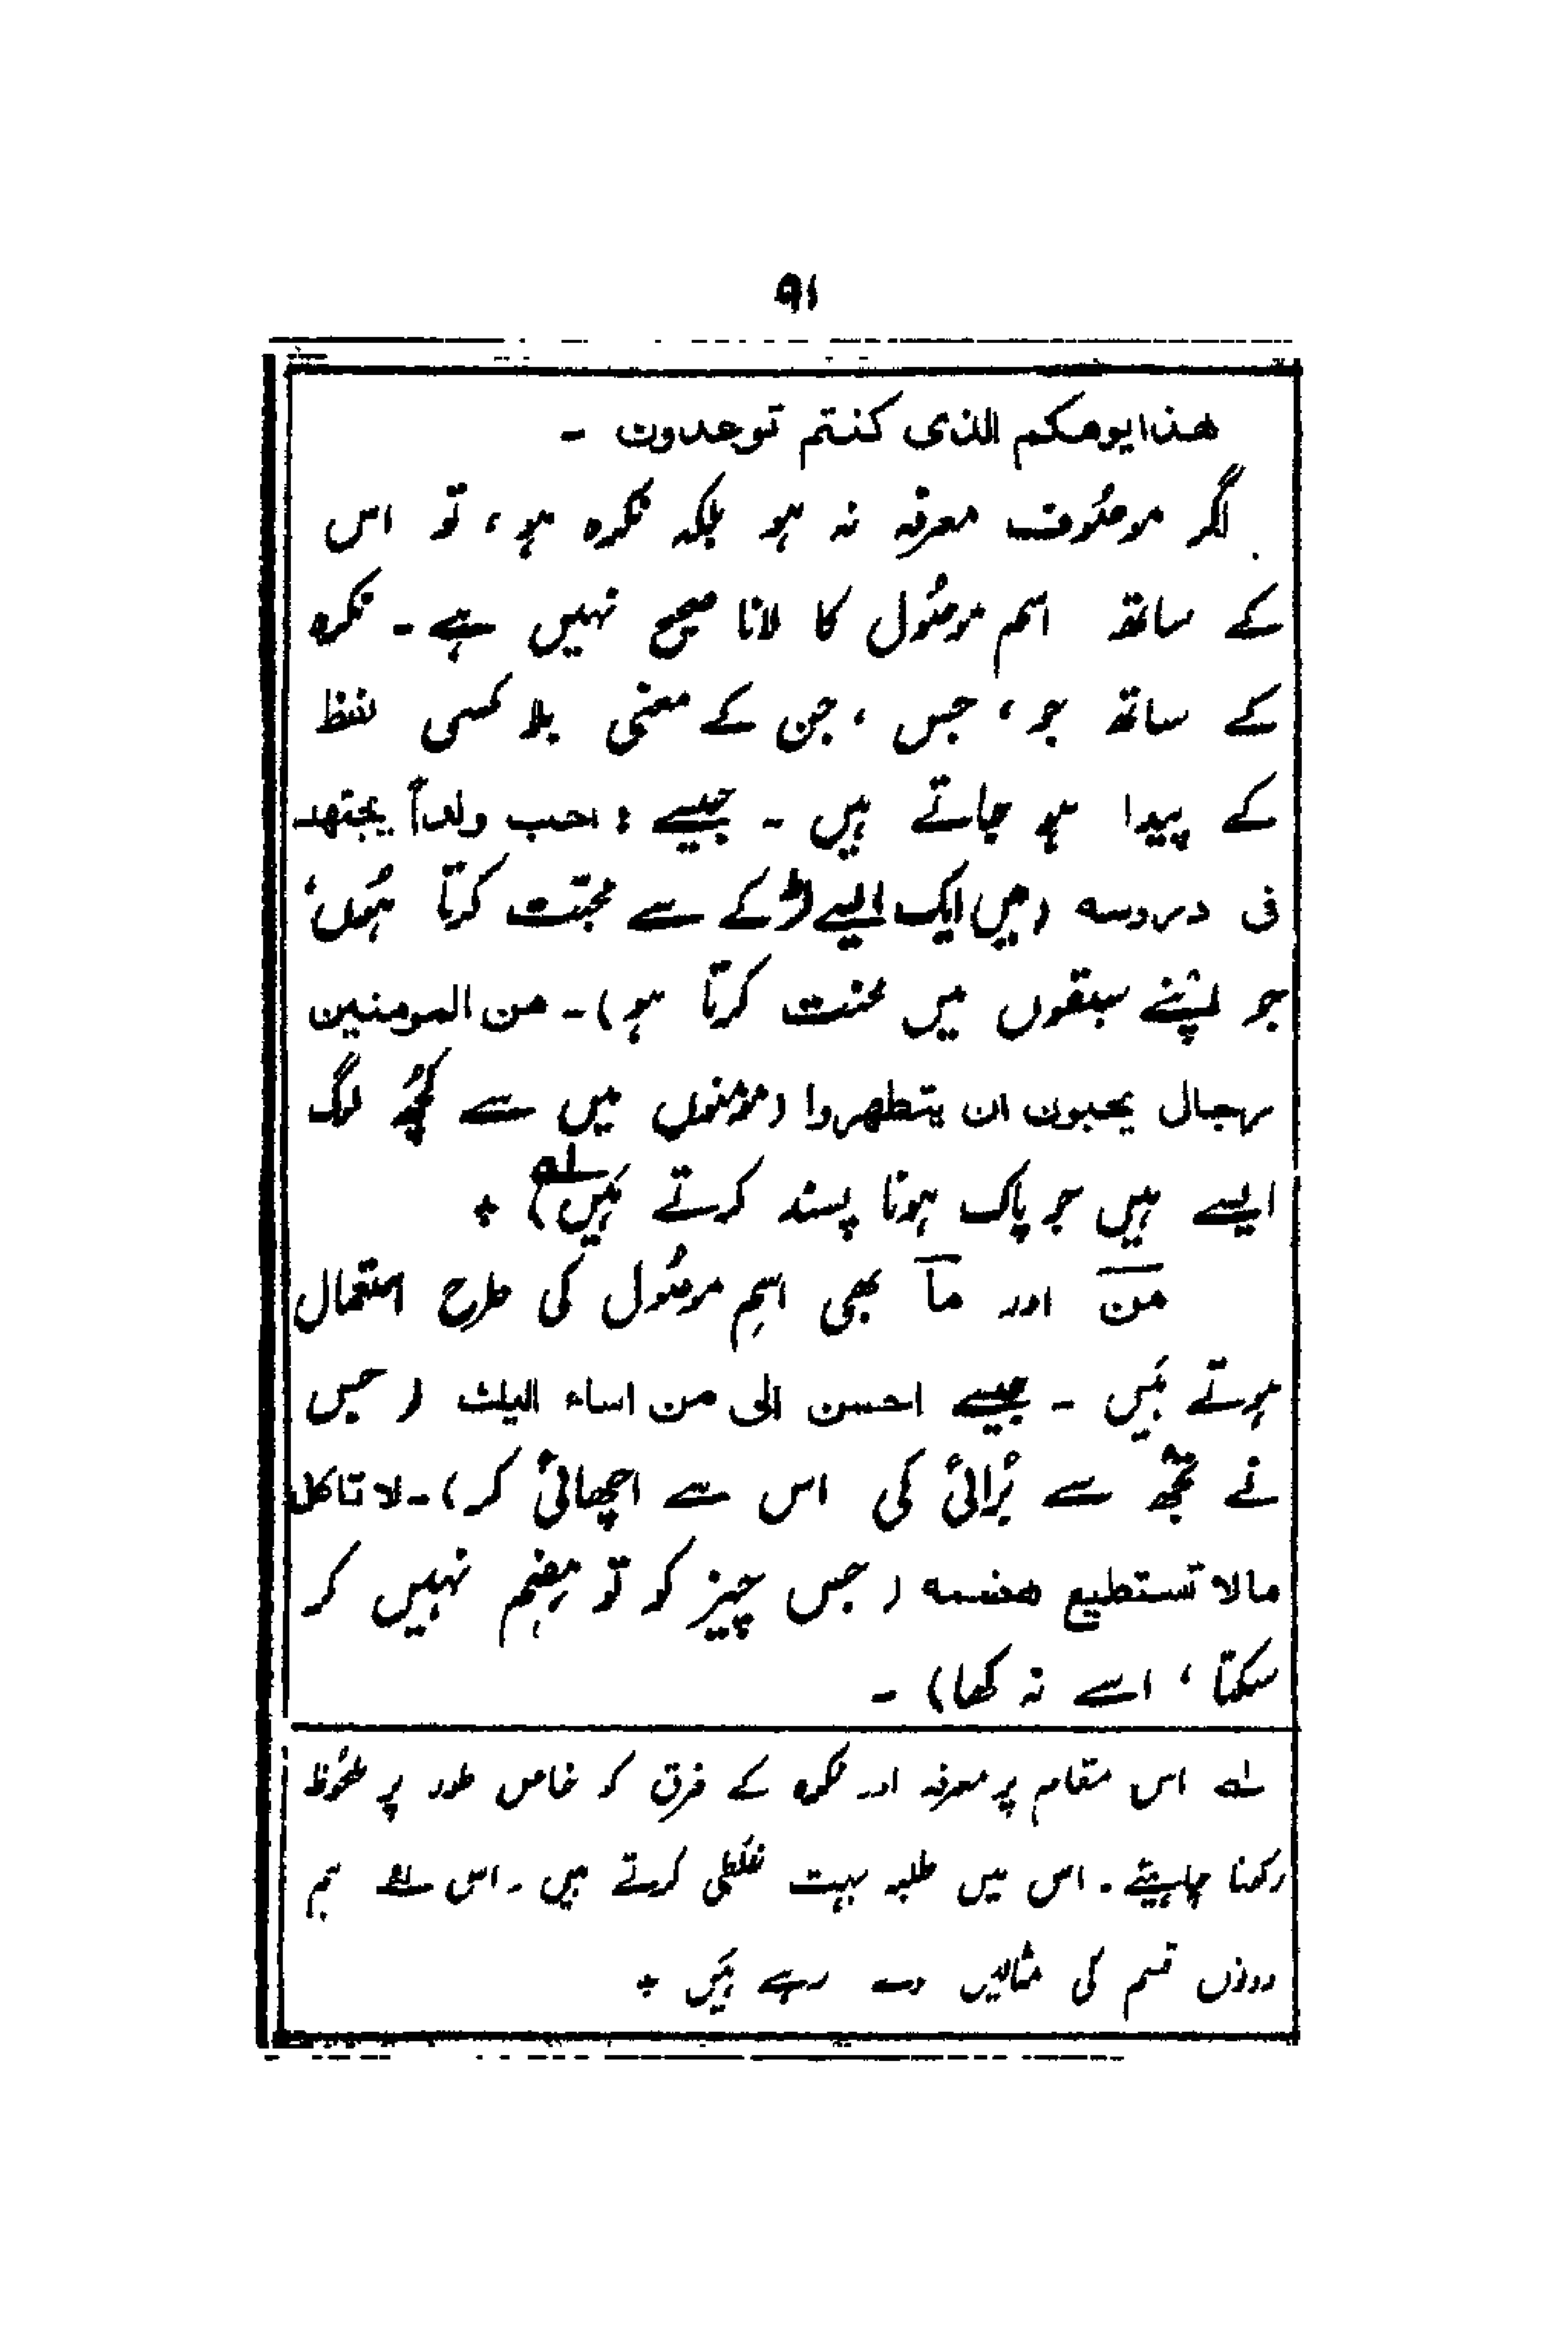 ۹۱
هذا يومكم الذى كنتم توعدون ۔
اگر موصُوف معرفہ نہ ہو بلکہ نکرہ ہو، تو اس
کے ساتھ اسم موصُول کا لانا صحیح نہیں ہے ۔ نکرہ
کے ساتھ جو ، جس ، جن کے معنی بلا کسی لفظ
کے پیدا ہو جاتے ہیں ۔ جیسے : احب ولداً يجتهد
فى دروسه (میں ایک ایسے لڑکے سے محبّت کرتا ہُوں،
جو اپنے سبقوں میں محنت کرتا ہو)۔ من المومنين
رجال يحبون ان يتطهروا (مومنوں میں سے کچُھ لوگ
ایسے ہیں جو پاک ہونا پسند کرتے ہَیں) لہ ٭
من اور ما بھی اسمِ موصُول کی طرح استعمال
ہوتے ہَیں ۔ جیسے احسن الى من اساء اليك (جس
نے تجھ سے بُرائی کی اس سے اچھائی کر)۔ لا تاكل
مالا تستطيع هضمه (جس چیز کو تو ہضم نہیں کر
سکتا ، اسے نہ کھا) ۔
لہ اس مقام پر معرفہ اور نکرہ کے فرق کو خاص طور پر ملحُوظ
رکھنا چاہیئے ۔ اس میں طلبہ بہت غلطی کرتے ہیں ۔ اس لئے ہم
دونوں قسم کی مثالیں دے رہے ہَیں ٭